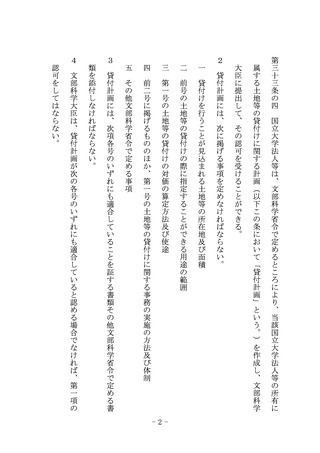 第三十三条の四　国立大学法人等は、文部科学省令で定めるところにより、当該国立大学法人等の所有に
属する土地等の貸付けに関する計画（以下この条において「貸付計画」という。）を作成し、文部科学
大臣に提出して、その認可を受けることができる。
２　貸付計画には、次に掲げる事項を定めなければならない。
一　貸付けを行うことが見込まれる土地等の所在地及び面積
二　前号の土地等の貸付けの際に指定することができる用途の範囲
三　第一号の土地等の貸付けの対価の算定方法及び使途
四　前二号に掲げるもののほか、第一号の土地等の貸付けに関する事務の実施の方法及び体制
五　その他文部科学省令で定める事項
３　貸付計画には、次項各号のいずれにも適合していることを証する書類その他文部科学省令で定める書
類を添付しなければならない。
４　文部科学大臣は、貸付計画が次の各号のいずれにも適合していると認める場合でなければ、第一項の
認可をしてはならない。
- 2 -